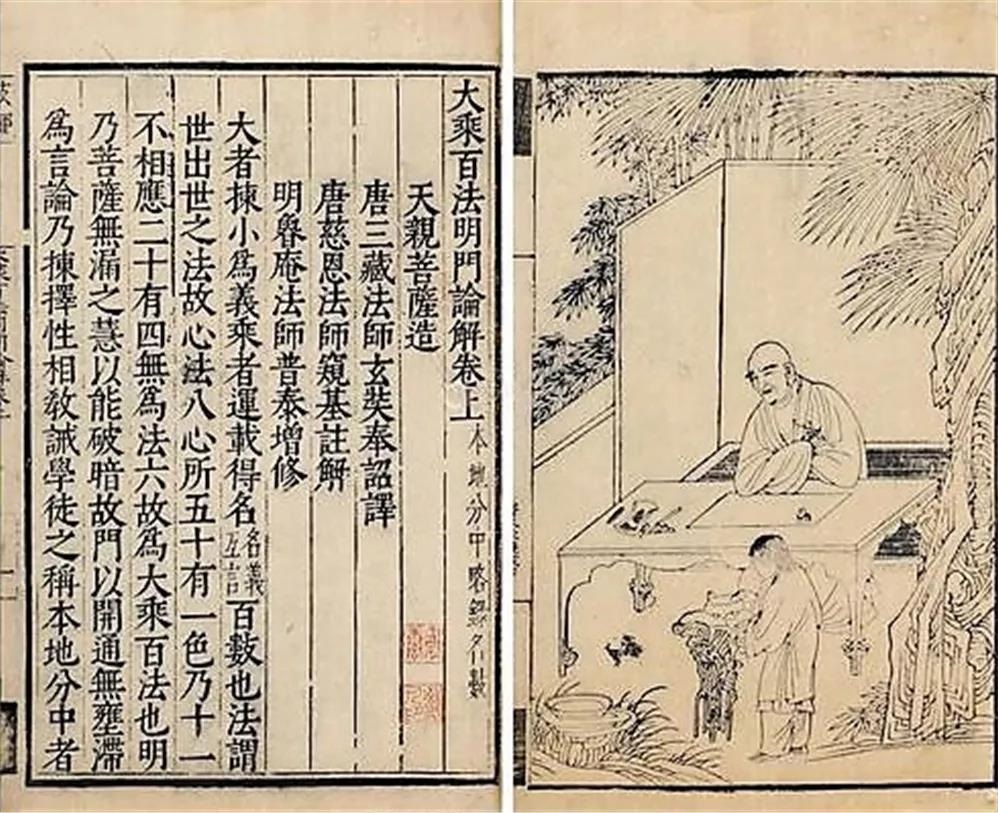 大乘百法明門論解卷上 本地分中略錄名數
天親菩薩造
唐三藏法師玄奘奉詔譯
唐慈恩法師窺基註解
明魯庵法師普泰增修
大者揀小爲義乘者運載得名名義互言百數也法謂
世出世之法故心法八心所五十有一色乃十一
不相應二十有四無爲法六故爲大乘百法也明
乃菩薩無漏之慧以能破暗故門以開通無壅滯
爲言論乃揀擇性相敎誡學徒之稱本地分中者